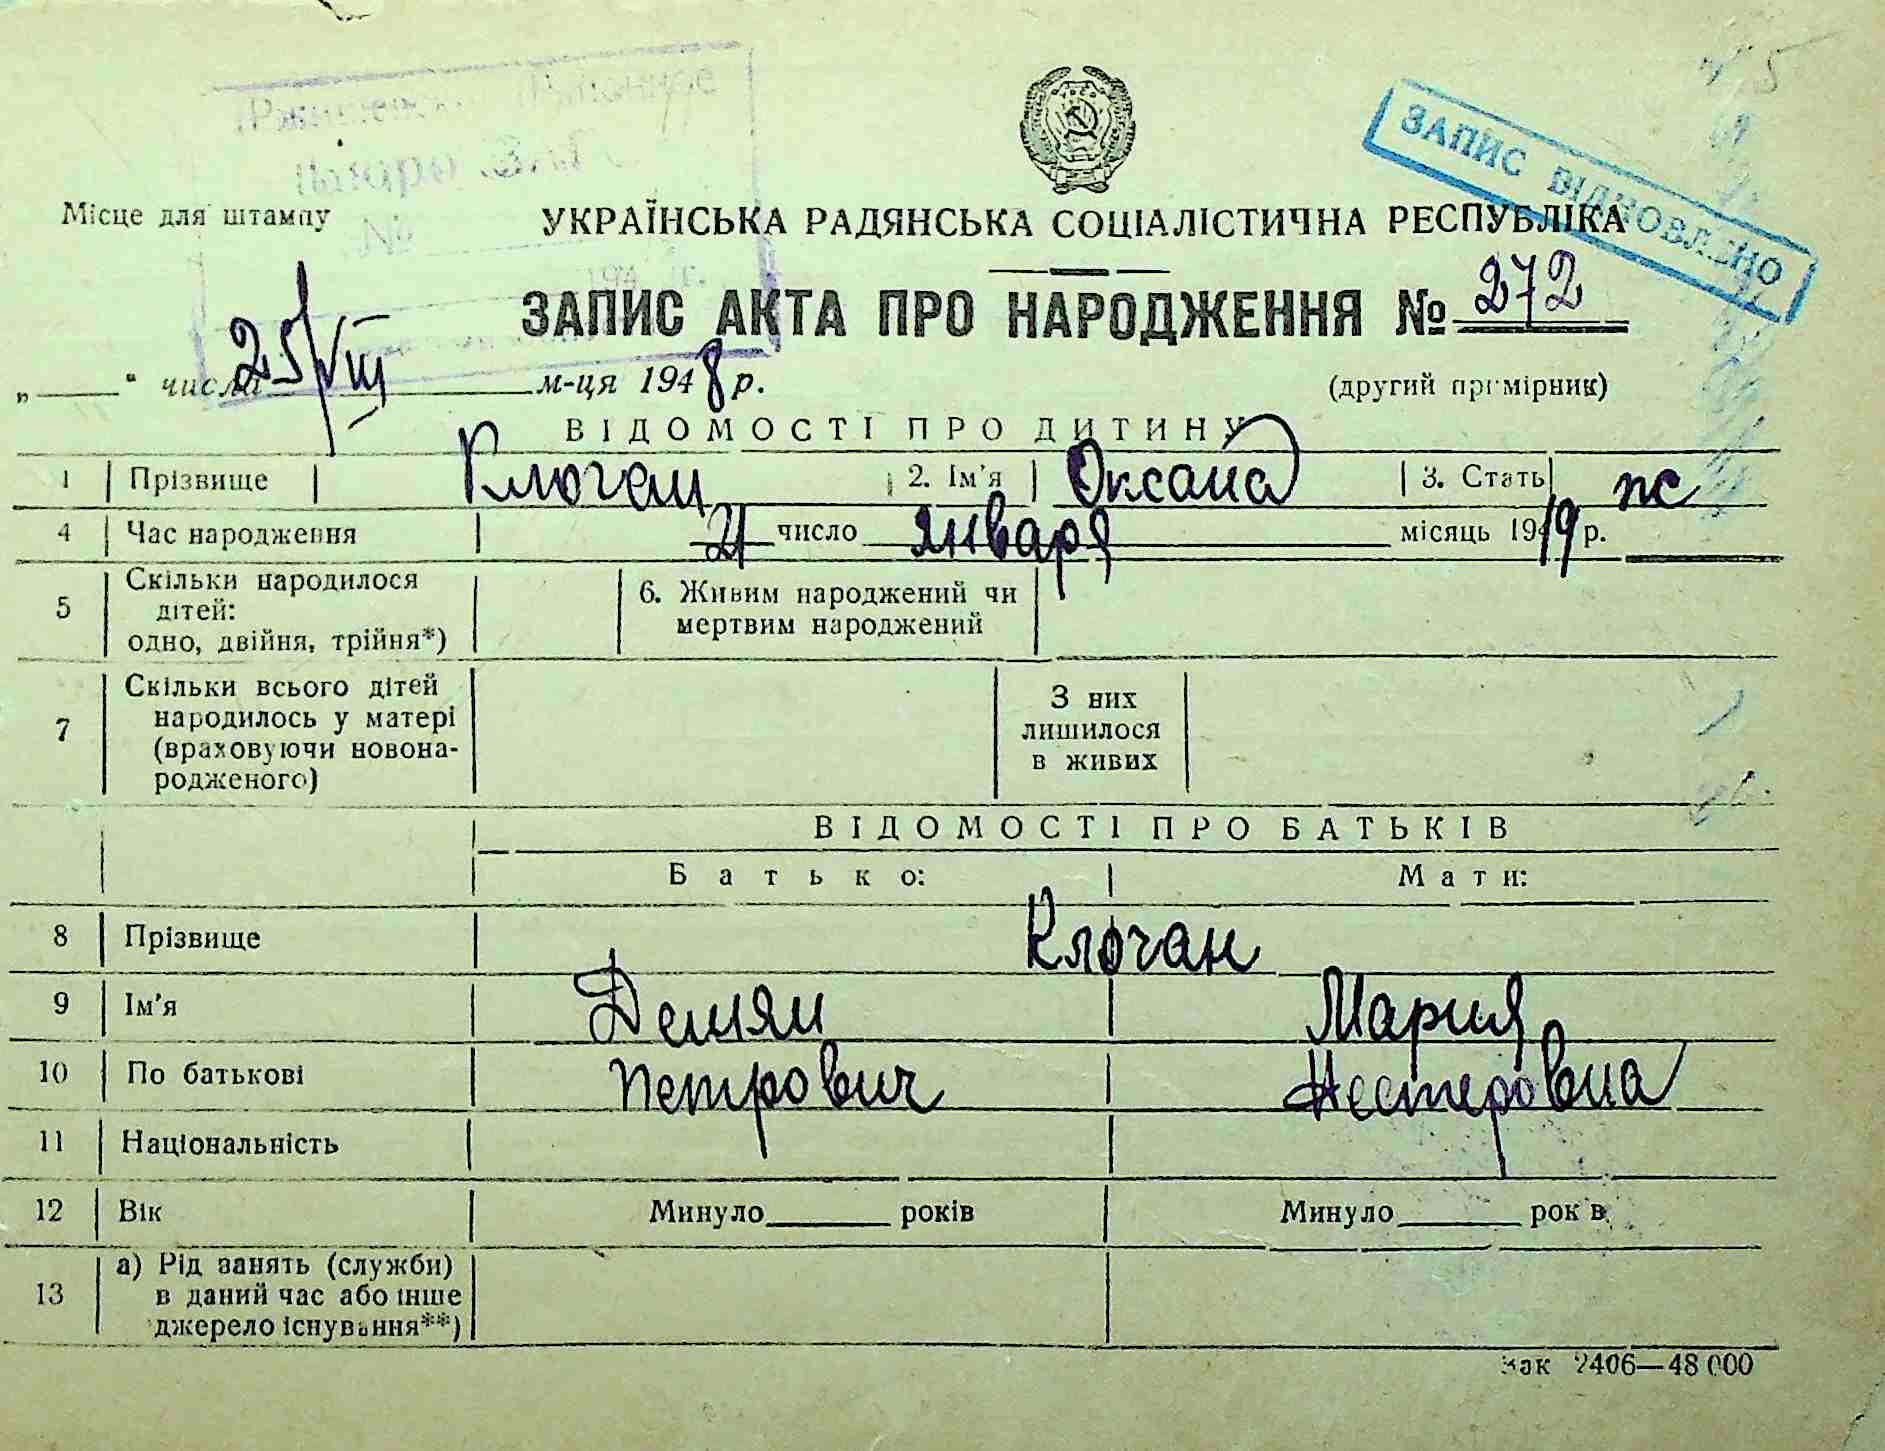 Бюро ЗАГС
№
194 г.
ЗАПИС ВІДНОВЛЕНО
Місце для штампу
УКРАЇНСЬКА РАДЯНСЬКА СОЦІАЛІСТИЧНА РЕСПУБЛІКА
ЗАПИС АКТА ПРО НАРОДЖЕННЯ № 272
„ “ числа 25/VIII м-ця 1948 р.
(другий примірник)
ВІДОМОСТІ ПРО ДИТИНУ
1 Прізвище Клочан 2. Ім'я Оксана 3. Стать ж
4 Час народження 21 число января місяць 1919 р.
5 Скільки народилося
дітей:
одно, двійня, трійня*)
6. Живим народжений чи
мертвим народжений
7 Скільки всього дітей
народилось у матері
(враховуючи новона-
родженого)
З них
лишилося
в живих
ВІДОМОСТІ ПРО БАТЬКІВ
Батько: Мати:
8 Прізвище Клочан
9 Ім'я Демян Мария
10 По батькові Петрович Нестеровна
11 Національність
12 Вік Минуло років Минуло років
13 а) Рід занять (служби)
в даний час або інше
джерело існування**)
Зак 2406—48 000